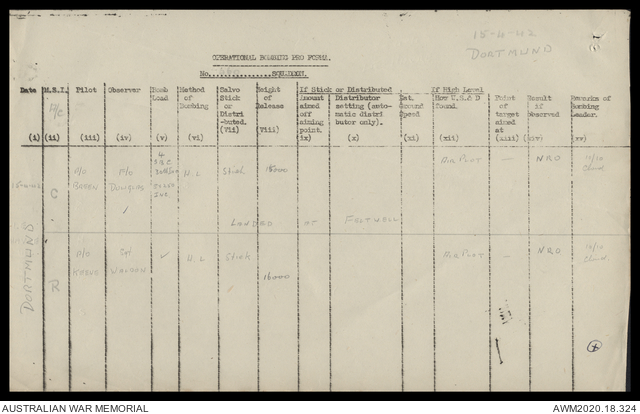 15-4-42
DORTMUND
OPERATIONAL BOMBING PRO FORMA.
No. SQUADRON.
Date (i)
M.S.I. A/C (ii)
Pilot (iii)
Observer (iv)
Bomb Load (v)
Method of Bombing (vi)
Salvo Stick or Distributed. (Vii)
Height of Release (Viii)
If Stick or Distributed
Amount aimed off aiming point. ix)
Distributor setting (automatic distributor only). (x)
Est. Ground Speed (xi)
If High Level
How W.S.& D found. (xii)
Point of target aimed at (xiii)
Result if Observed (xiv)
Remarks of Bombing Leader. (xv)
C
P/O
P/O DOUGLAS
4
D.L
Stick
15000
AIR PLOT
—
NRO
10/10 Cloud.
LANDED AT FELTWELL
DORTMUND
R
P/O
Sgt
✓
D.L
Stick
16000
AIR PLOT
—
NRO
10/10 Cloud.
AUSTRALIAN WAR MEMORIAL
AWM2020.18.324